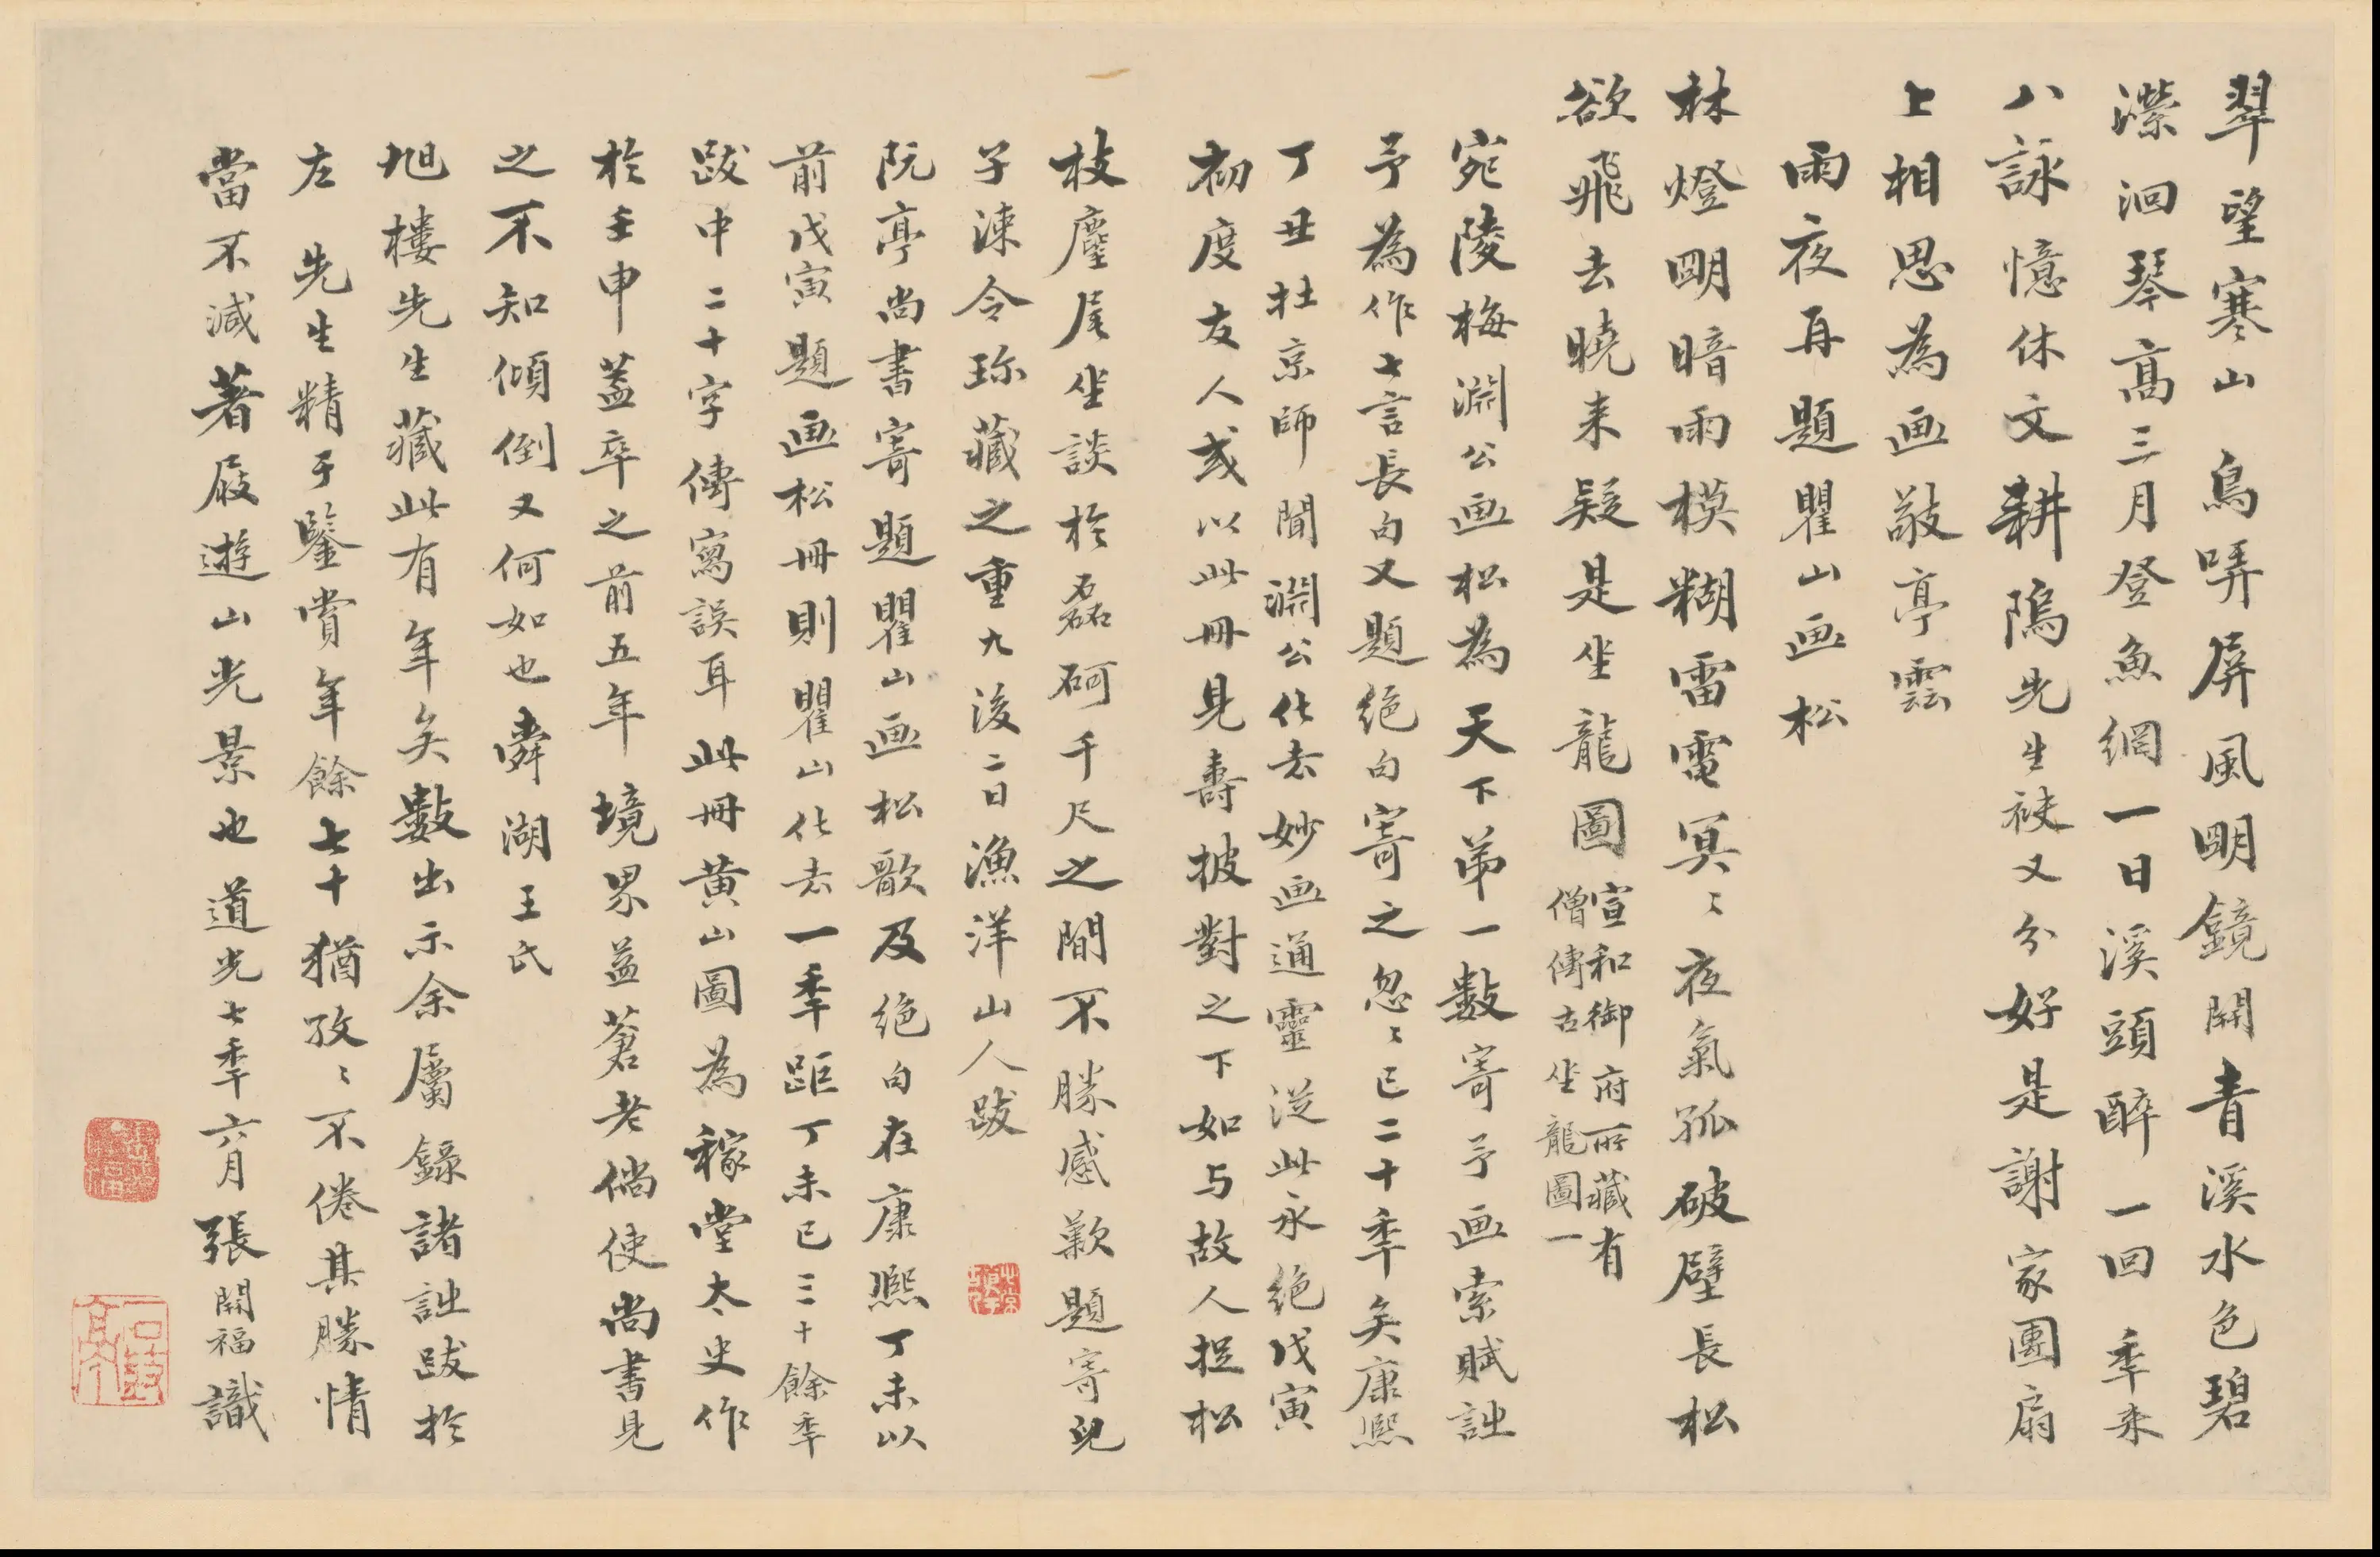 翠望寒山鳥哢屏風明鏡開青溪水色碧
潆洄琴髙三月登魚網一日溪頭醉一回季来
八詠憶休文耕隖先生袂又分好是謝家團扇
上相思為画敬亭雲
雨夜再題瞿山画松
林燈明暗雨模糊雷電冥〻夜氣孤破壁長松
欲飛去曉来疑是坐龍圖宣和御府所藏有
僧傳古坐龍圖一
宛陵梅淵公画松為天下弟一數寄予画索賦詩
予為作七言長句又題絕句寄之忽〻已二十季矣康熙
丁丑在京師聞淵公化去妙画通靈從此永絕戊寅
初度友人或以此冊見壽披對之下如与故人捉松
枝麈尾坐談於磊砢千尺之間不勝感歎題寄兒
子涑令珎藏之重九後二日漁洋山人跋
阮亭尚書寄題瞿山画松歌及絕句在康熙丁未以
前戊寅題画松冊則瞿山化去一季距丁未已三十餘季
跋中二十字傳寫誤耳此冊黄山圖為稼堂太史作
於壬申蓋卒之前五年境界益蒼老倘使尚書見
之不知傾倒又何如也舜湖王氏
旭樓先生藏此有年矣數出示余屬錄諸詩跋於
左先生精于鑒賞年餘七十猶孜〻不倦其勝情
當不減著屐遊山光景也道光七季六月張開福識